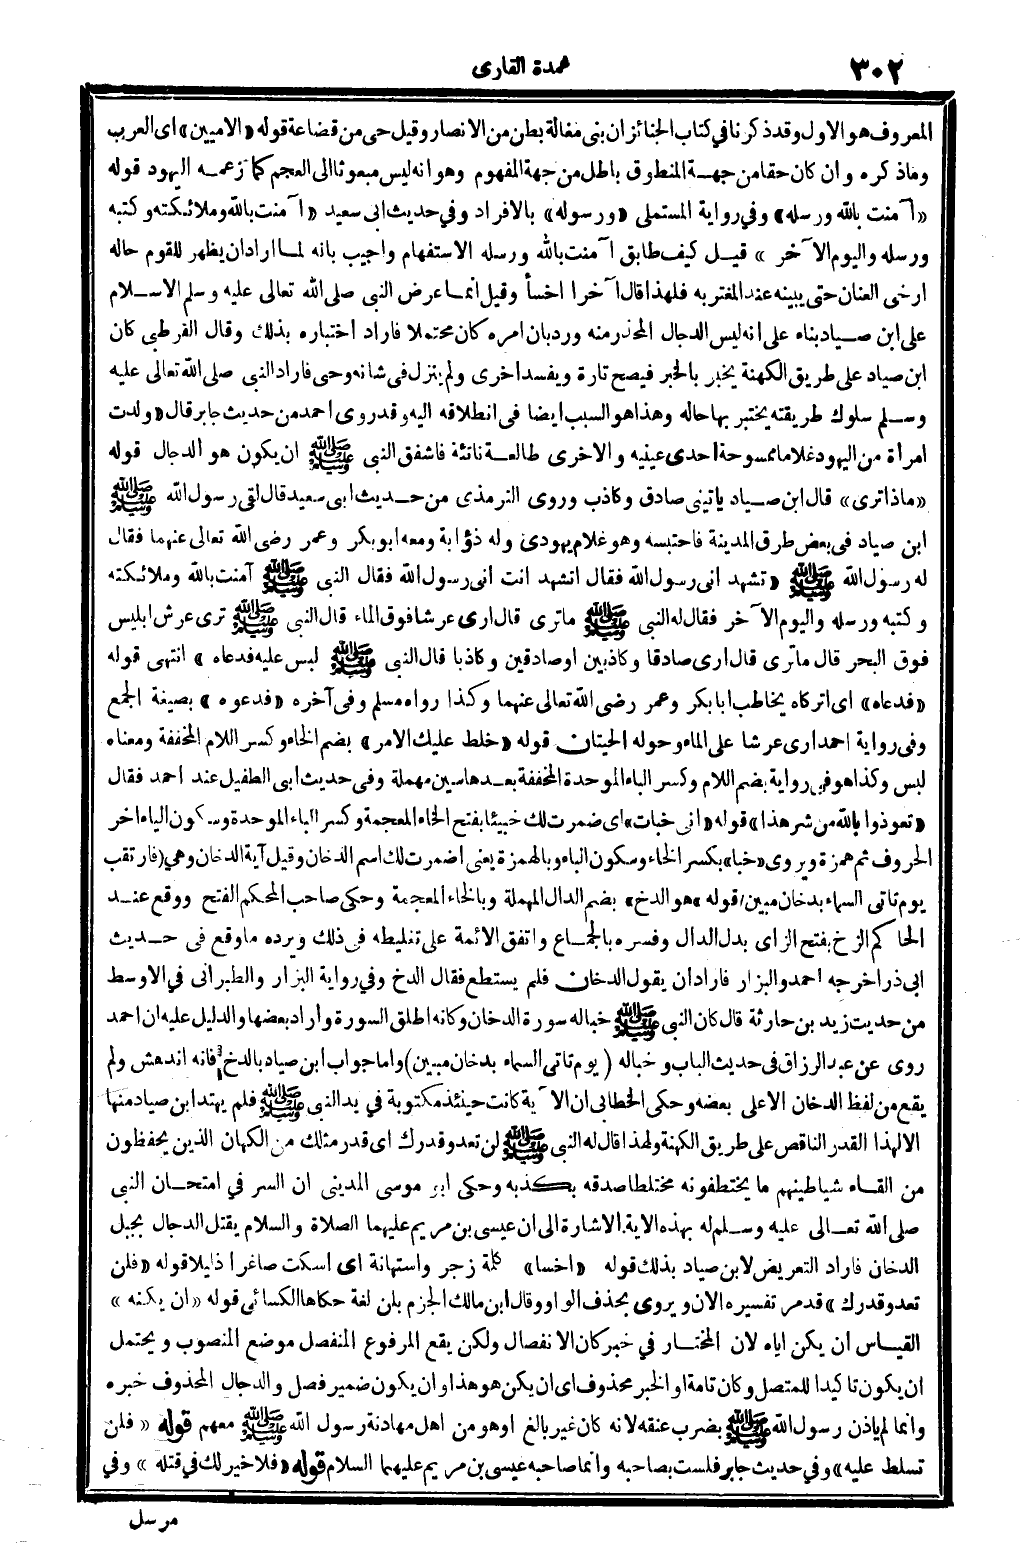 ٣٠٢
عمدة القارى
المعروف هو الاول وقد ذكرنا في كتاب الجنائز ان بنى مغالة بطن من الانصار وقيل حى من قضاعة قوله «الاميين» اى العرب
وماذكره وان كان حقا من جهة المنطوق باطل من جهة المفهوم وهو انه ليس مبعوثا الى العجم كما زعمه اليهود قوله
«آمنت بالله ورسله» وفي رواية المستملى «ورسوله» بالافراد وفي حديث ابى سعيد «آمنت بالله وملائكته وكتبه
ورسله واليوم الآخر» قيل كيف طابق آمنت بالله ورسله الاستفهام واجيب بانه لما اراد ان يظهر للقوم حاله
ارخى العنان حتى يبينه عند المغتر به فلهذا قال آخرا اخسأ وقيل انما عرض النبى صلى الله تعالى عليه وسلم الاسلام
على ابن صياد بناء على انه ليس الدجال المحذر منه ورد بان امره كان محتملا فاراد اختباره بذلك وقال القرطبى كان
ابن صياد على طريق الكهنة يخبر بالخبر فيصح تارة ويفسد اخرى ولم ينزل فى شانه وحى فاراد النبى صلى الله تعالى عليه
وسلم سلوك طريقته يختبر بها حاله وهذا هو السبب ايضا فى انطلاقه اليه وقد روى احمد من حديث جابر قال «ولدت
امرأة من اليهود غلاما ممسوحة احدى عينيه والاخرى طالعة ناتئة فاشفق النبى ﷺ ان يكون هو الدجال قوله
«ماذا ترى» قال ابن صياد ياتينى صادق وكاذب وروى الترمذى من حديث ابى سعيد قال لقى رسول الله ﷺ
ابن صياد فى بعض طرق المدينة فاحتبسه وهو غلام يهودى وله ذؤابة ومعه ابو بكر وعمر رضى الله تعالى عنهما فقال
له رسول الله ﷺ «تشهد انى رسول الله فقال اتشهد انت انى رسول الله فقال النبى ﷺ آمنت بالله وملائكته
وكتبه ورسله واليوم الآخر فقال له النبى ﷺ ماترى قال ارى عرشا فوق الماء قال النبى ﷺ ترى عرش ابليس
فوق البحر قال ماترى قال ارى صادقا وكاذبين او صادقين وكاذبا قال النبى ﷺ لبس عليه فدعاه» انتهى قوله
«فدعاه» اى اتركاه يخاطب ابا بكر وعمر رضى الله تعالى عنهما وكذا رواه مسلم وفى آخره «فدعوه» بصيغة الجمع
وفى رواية احمد ارى عرشا على الماء وحوله الحيتان قوله «خلط عليك الامر» بضم الخاء وكسر اللام المخففة ومعناه
لبس وكذا هو فى رواية بضم اللام وكسر الباء الموحدة المخففة بعدها سين مهملة وفى حديث ابى الطفيل عند احمد فقال
«تعوذوا بالله من شر هذا» قوله «انى خبات» اى ضمرت لك خبيئا بفتح الخاء المعجمة وكسر الباء الموحدة وسكون الياء اخر
الحروف ثم همزة ويروى «خبا» بكسر الخاء وسكون الباء وبالهمزة يعنى اضمرت لك اسم الدخان وقيل آية الدخان وهي (فارتقب
يوم تاتى السماء بدخان مبين) قوله «هو الدخ» بضم الدال المهملة وبالخاء المعجمة وحكى صاحب المحكم الفتح ووقع عند
الحاكم الزخ بفتح الزاى بدل الدال وفسره بالجماع واتفق الائمة على تغليطه فى ذلك ويرده ماوقع فى حديث
ابى ذر اخرجه احمد والبزار فاراد ان يقول الدخان فلم يستطع فقال الدخ وفي رواية البزار والطبرانى في الاوسط
من حديث زيد بن حارثة قال كان النبى ﷺ خبا له سورة الدخان وكانه اطلق السورة وأراد بعضها والدليل عليه ان احمد
روى عن عبد الرزاق فى حديث الباب وخبا له (يوم تاتى السماء بدخان مبين) واما جواب ابن صياد بالدخ فانه اندهش ولم
يقع من لفظ الدخان الا على بعضه وحكى الخطابى ان الآية كانت حينئذ مكتوبة في يد النبى ﷺ فلم يهتد ابن صياد منها
الا لهذا القدر الناقص على طريق الكهنة ولهذا قال له النبى ﷺ لن تعدو قدرك اى قدر مثلك من الكهان الذين يحفظون
من القاء شياطينهم ما يختطفونه مختلطا صدقه بكذبه وحكى ابو موسى المدينى ان السر في امتحان النبى
صلى الله تعالى عليه وسلم له بهذه الاية الاشارة الى ان عيسى بن مريم عليهما الصلاة والسلام يقتل الدجال بجبل
الدخان فاراد التعريض لابن صياد بذلك قوله «اخسا» كلمة زجر واستهانة اى اسكت صاغرا ذليلا قوله «فلن
تعدو قدرك» قد مر تفسيره الان ويروى بحذف الواو وقال ابن مالك الجزم بلن لغة حكاها الكسائى قوله «ان يكنه»
القياس ان يكن اياه لان المختار في خبر كان الانفصال ولكن يقع المرفوع المنفصل موضع المنصوب ويحتمل
ان يكون تاكيدا للمتصل وكان تامة او الخبر محذوف اى ان يكن هو هذا وان يكون ضمير فصل والدجال المحذوف خبره
وانما لم ياذن رسول الله ﷺ بضرب عنقه لانه كان غير بالغ او هو من اهل مهادنة رسول الله ﷺ معهم قوله «فلن
تسلط عليه» وفي حديث جابر فلست بصاحبه وانما صاحبه عيسى بن مريم عليهما السلام قوله «فلا خير لك في قتله» وفي
مرسل